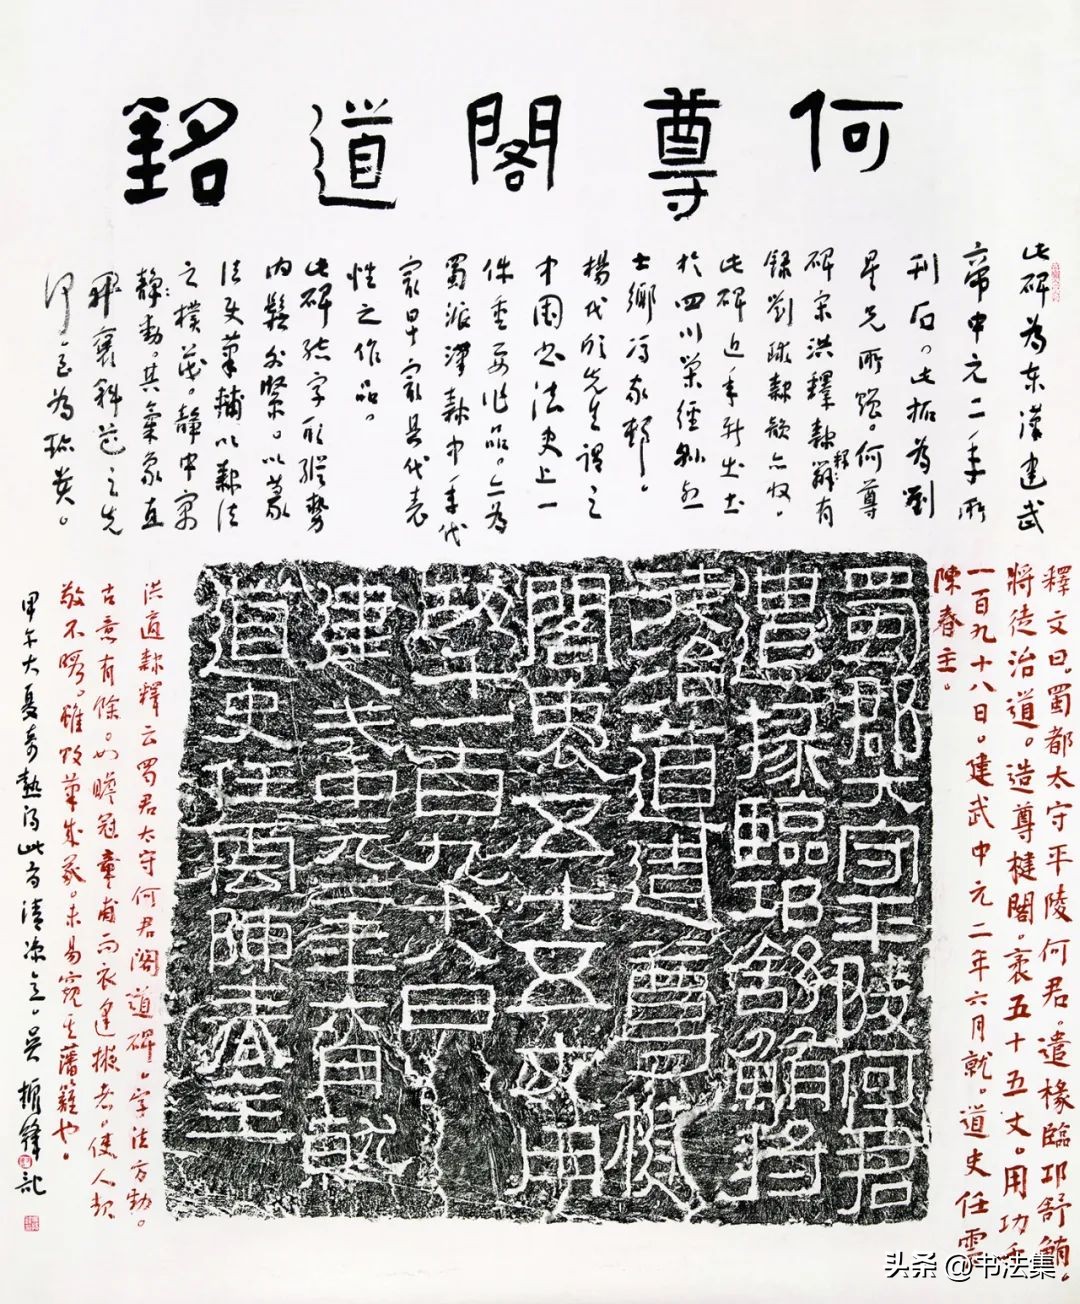 何尊閣道銘
此碑为东漢建武
帝中元二年所
刊石。此拓为劉
星兄所貽。何尊
碑宋洪釋隸釋有
錄劉球隸韻亦收。
此碑近年新出土
於四川滎經縣
士鄉馮家村。
楊代欣先生谓之
中国书法史上一
件重要作品。亦为
蜀派漢隸中年代
最早最具代表
性之作品。
此碑结字形縱势
内鬆外緊。以篆
法使筆輔以隸法
之樸茂。静中寓
静動。其氣象直
開褒斜道之先
河。至为珍贵。
蜀郡太守平陵何君
遣掾臨邛舒鮪將
徒治道造尊楗
閣袤五十五丈用
功千一百九十八日
建武中元二年六月就
道史任雲陳春主
釋文曰。蜀都太守平陵何君。遣椽臨邛舒鮪。
将徒治道。造尊楗閣。袤五十五丈。用功千
一百九十八日。建武中元二年六月就。道史任雲
陳春主。
洪适隸釋云蜀君太守何君阁道碑。字法方勁。
古意有餘。如瞻冠章甫而衣逢掖者。使人起
敬不暇。雖敗筆成冢。未易窺其藩籬也。
甲午大夏奇熱同此有清凉意。吴振鋒記
头条 @书法集